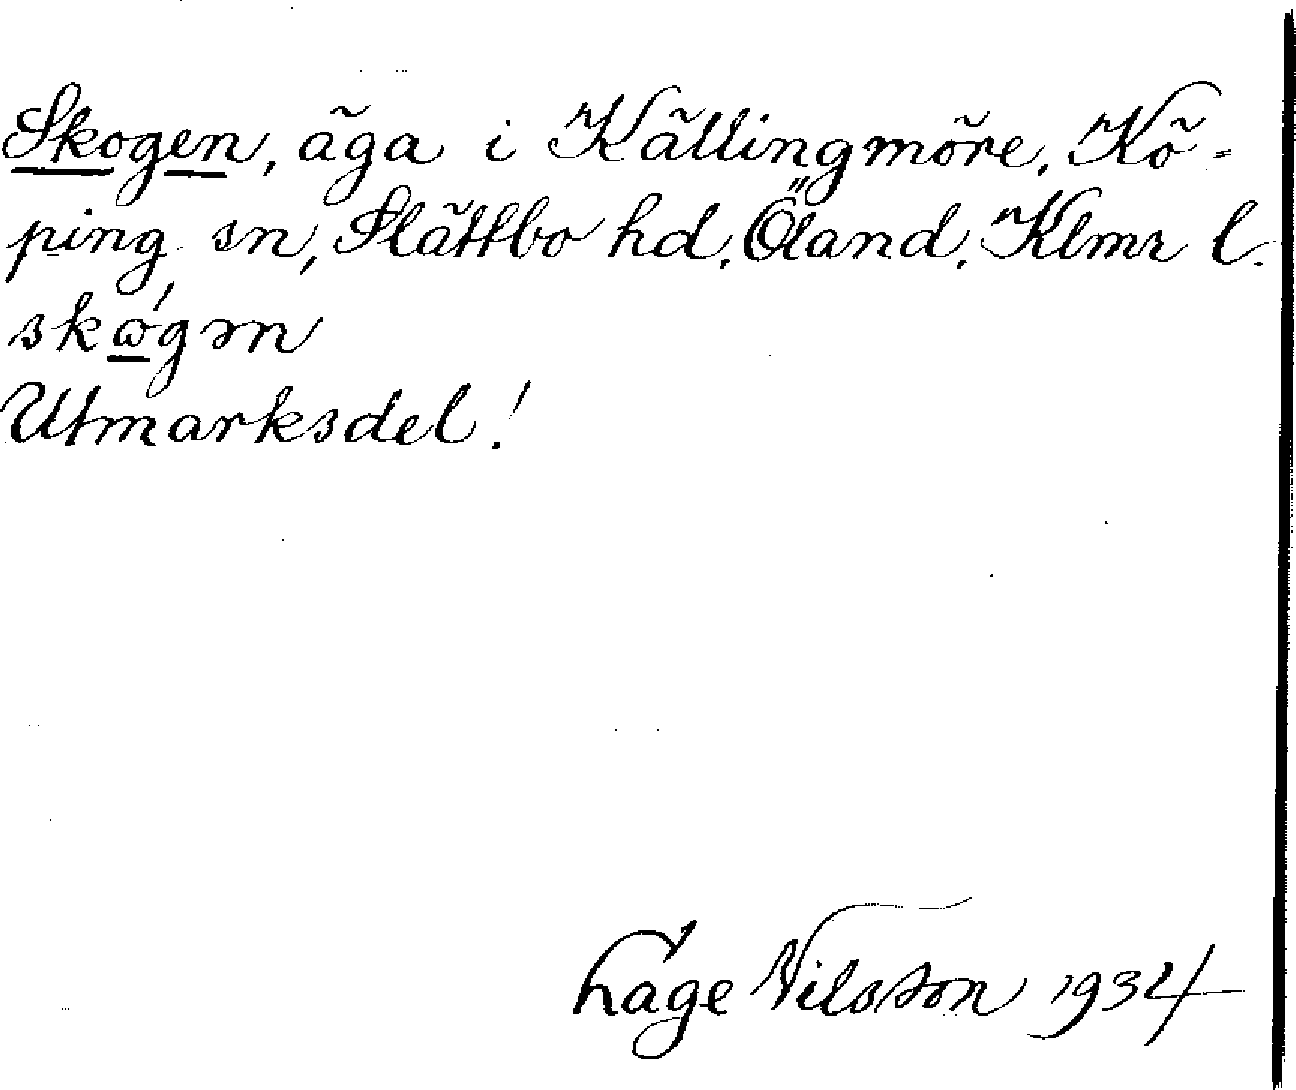 Skogen, äga i Källingmöre, Kö-
ping sn, Slättbo hd, Öland, Klmr l.
skώ̲gən
Utmarksdel!
Låge Nilsson 1934